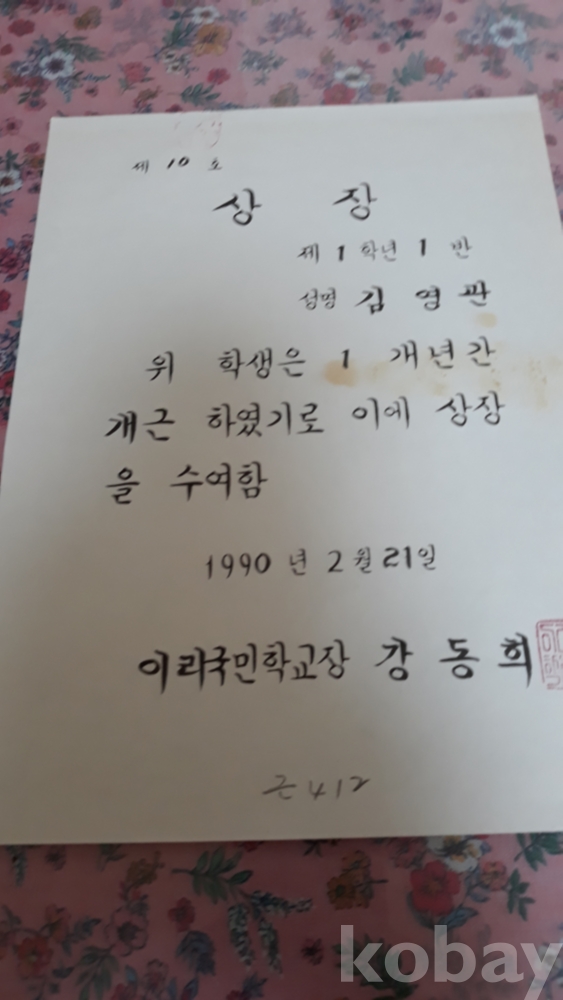 제 10 호
상 장
제 1 학년 1 반
성명 김 영 관
위 학생은 1 개년간
개근 하였기로 이에 상장
을 수여함
1990 년 2 월 21 일
이리국민학교장 강 동 희
412
kobay